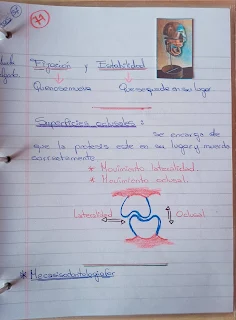 77
Fijación y Estabilidad
Que no se mueva Que se quede en su lugar.
Superficies oclusales:
se encarga de
que la protesis este en su lugar y muerda
correctamente.
* Movimiento lateralidad.
* Movimiento oclusal.
Lateralidad Oclusal